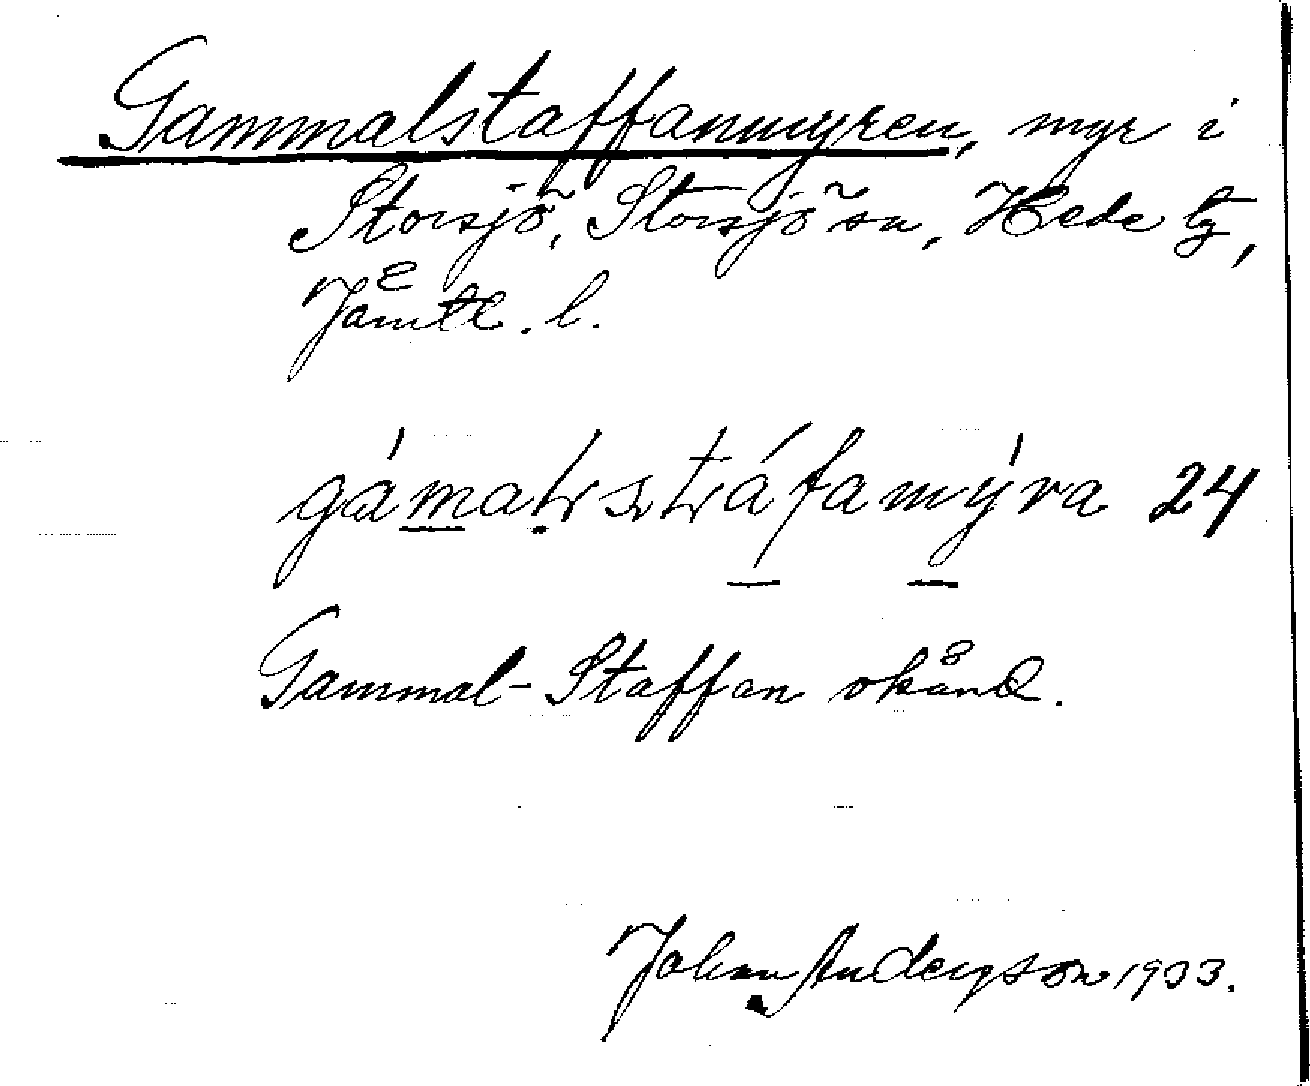 Gammalstaffanmyren, myr i
Storsjö, Storsjö sn, Hede tg,
Jämtl. l.
24
Gammal-Staffan okänd.
Johan Anderson 1933.